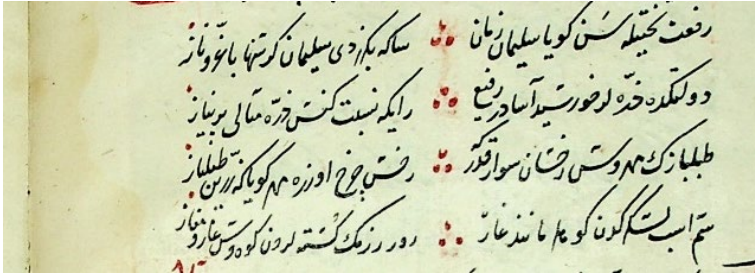 رفعت تختیله سَن کویا سلیمان زمان ساکه بکزردی سلیمان کر شها با عزّ و ناز
دولتکده ذرّه لر خورشید آسا در رفیع رایکه نسبت کنش ذرّه مثالی بر نیاز
طبلبازک مهروش رخشان سوار رخش چرخ اوزره مه کویا که زرّین طبلباز
سم اسب لشکرکدن مانند غار روز رزمک کشته لردن کوه وش